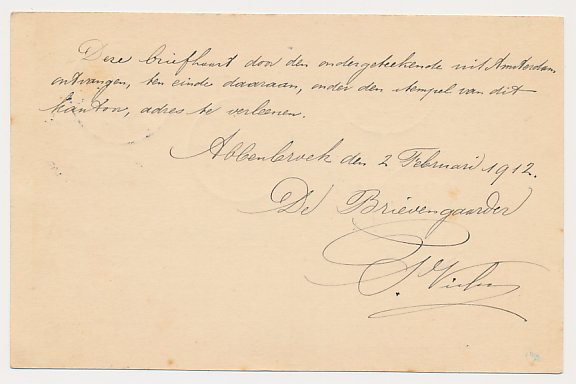 Deze briefkaart door den ondergeteekende uit Amsterdam
ontvangen, ten einde daaraan, onder den stempel van dit
kantoor, adres te verleenen.
Abbenbroek den 2 Februari 1912.
De Brievengaarder